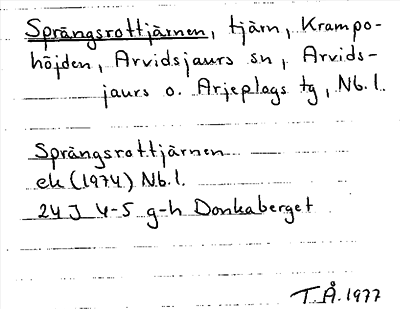 Sprängsrottjärnen, tjärn, Krampo-
höjden, Arvidsjaurs sn, Arvids-
jaurs o. Arjeplogs tg, Nb. l.
Sprängsrottjärnen
ek (1974) Nb. l.
24 J 4-5 g-h Donkaberget
T.Å. 1977